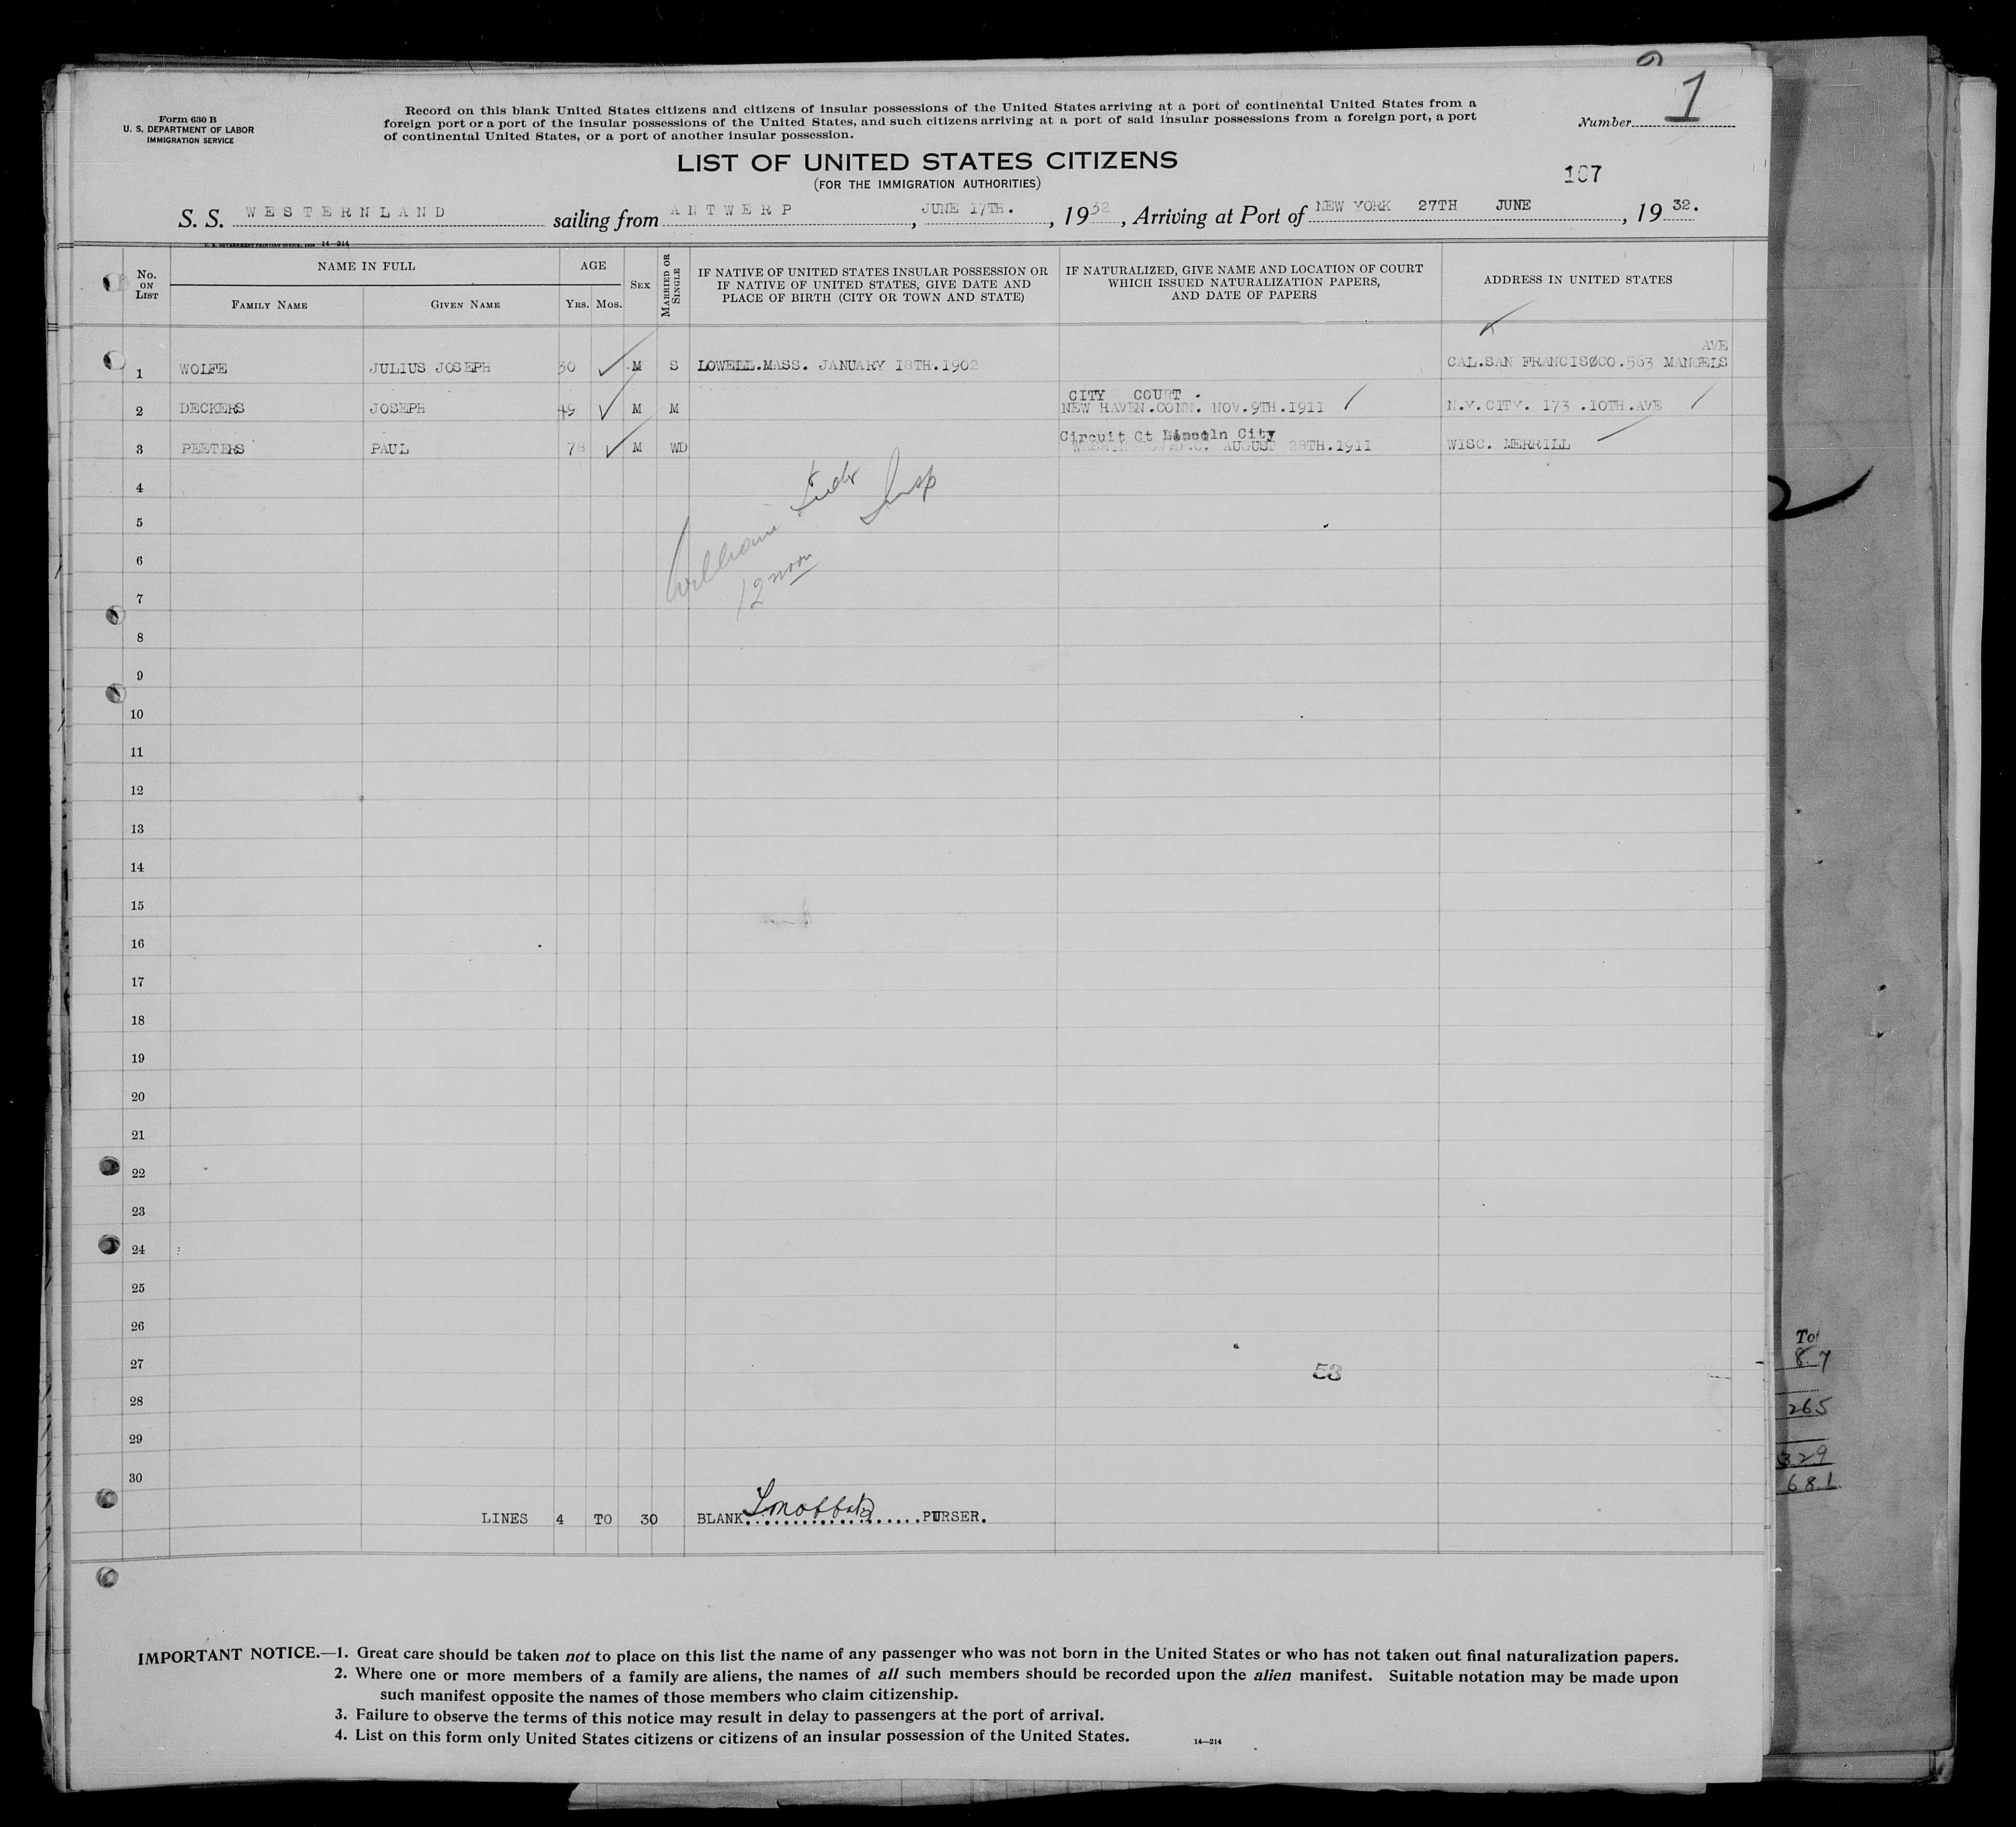 Form 630 B
U. S. DEPARTMENT OF LABOR
IMMIGRATION SERVICE
Record on this blank United States citizens and citizens of insular possessions of the United States arriving at a port of continental United States from a
foreign port or a port of the insular possessions of the United States, and such citizens arriving at a port of said insular possessions from a foreign port, a port
of continental United States, or a port of another insular possession.
Number 1
LIST OF UNITED STATES CITIZENS
(FOR THE IMMIGRATION AUTHORITIES)
107
S. S. WESTERNLAND sailing from ANTWERP, JUNE 17TH., 1932, Arriving at Port of NEW YORK 27TH JUNE, 1932.
14—214
No. ON LIST
NAME IN FULL
FAMILY NAME
GIVEN NAME
AGE
YRS. MOS.
SEX
MARRIED OR SINGLE
IF NATIVE OF UNITED STATES INSULAR POSSESSION OR
IF NATIVE OF UNITED STATES, GIVE DATE AND
PLACE OF BIRTH (CITY OR TOWN AND STATE)
IF NATURALIZED, GIVE NAME AND LOCATION OF COURT
WHICH ISSUED NATURALIZATION PAPERS,
AND DATE OF PAPERS
ADDRESS IN UNITED STATES
AVE
1 WOLFE JULIUS JOSEPH 30 M S LOWELL.MASS. JANUARY 18TH.1902 CAL.SAN FRANCISCO.563 MANGELS
CITY COURT .
2 DECKERS JOSEPH 49 M M NEW HAVEN.CONN. NOV.9TH.1911 N.Y.CITY. 173 .10TH.AVE
Circuit Ct Lincoln City
3 PEETERS PAUL 78 M WD WASHINGTON.D.C. AUGUST 28TH.1911 WISC. MERRILL
4
William Insp
5
6
12 noon
7
8
9
10
11
12
13
14
15
16
17
18
19
20
21
22
23
24
25
26
27
53
28
29
30
LINES 4 TO 30 BLANK PURSER.
To
87
265
329
681
IMPORTANT NOTICE.—1. Great care should be taken not to place on this list the name of any passenger who was not born in the United States or who has not taken out final naturalization papers.
2. Where one or more members of a family are aliens, the names of all such members should be recorded upon the alien manifest. Suitable notation may be made upon
such manifest opposite the names of those members who claim citizenship.
3. Failure to observe the terms of this notice may result in delay to passengers at the port of arrival.
4. List on this form only United States citizens or citizens of an insular possession of the United States.
14—214